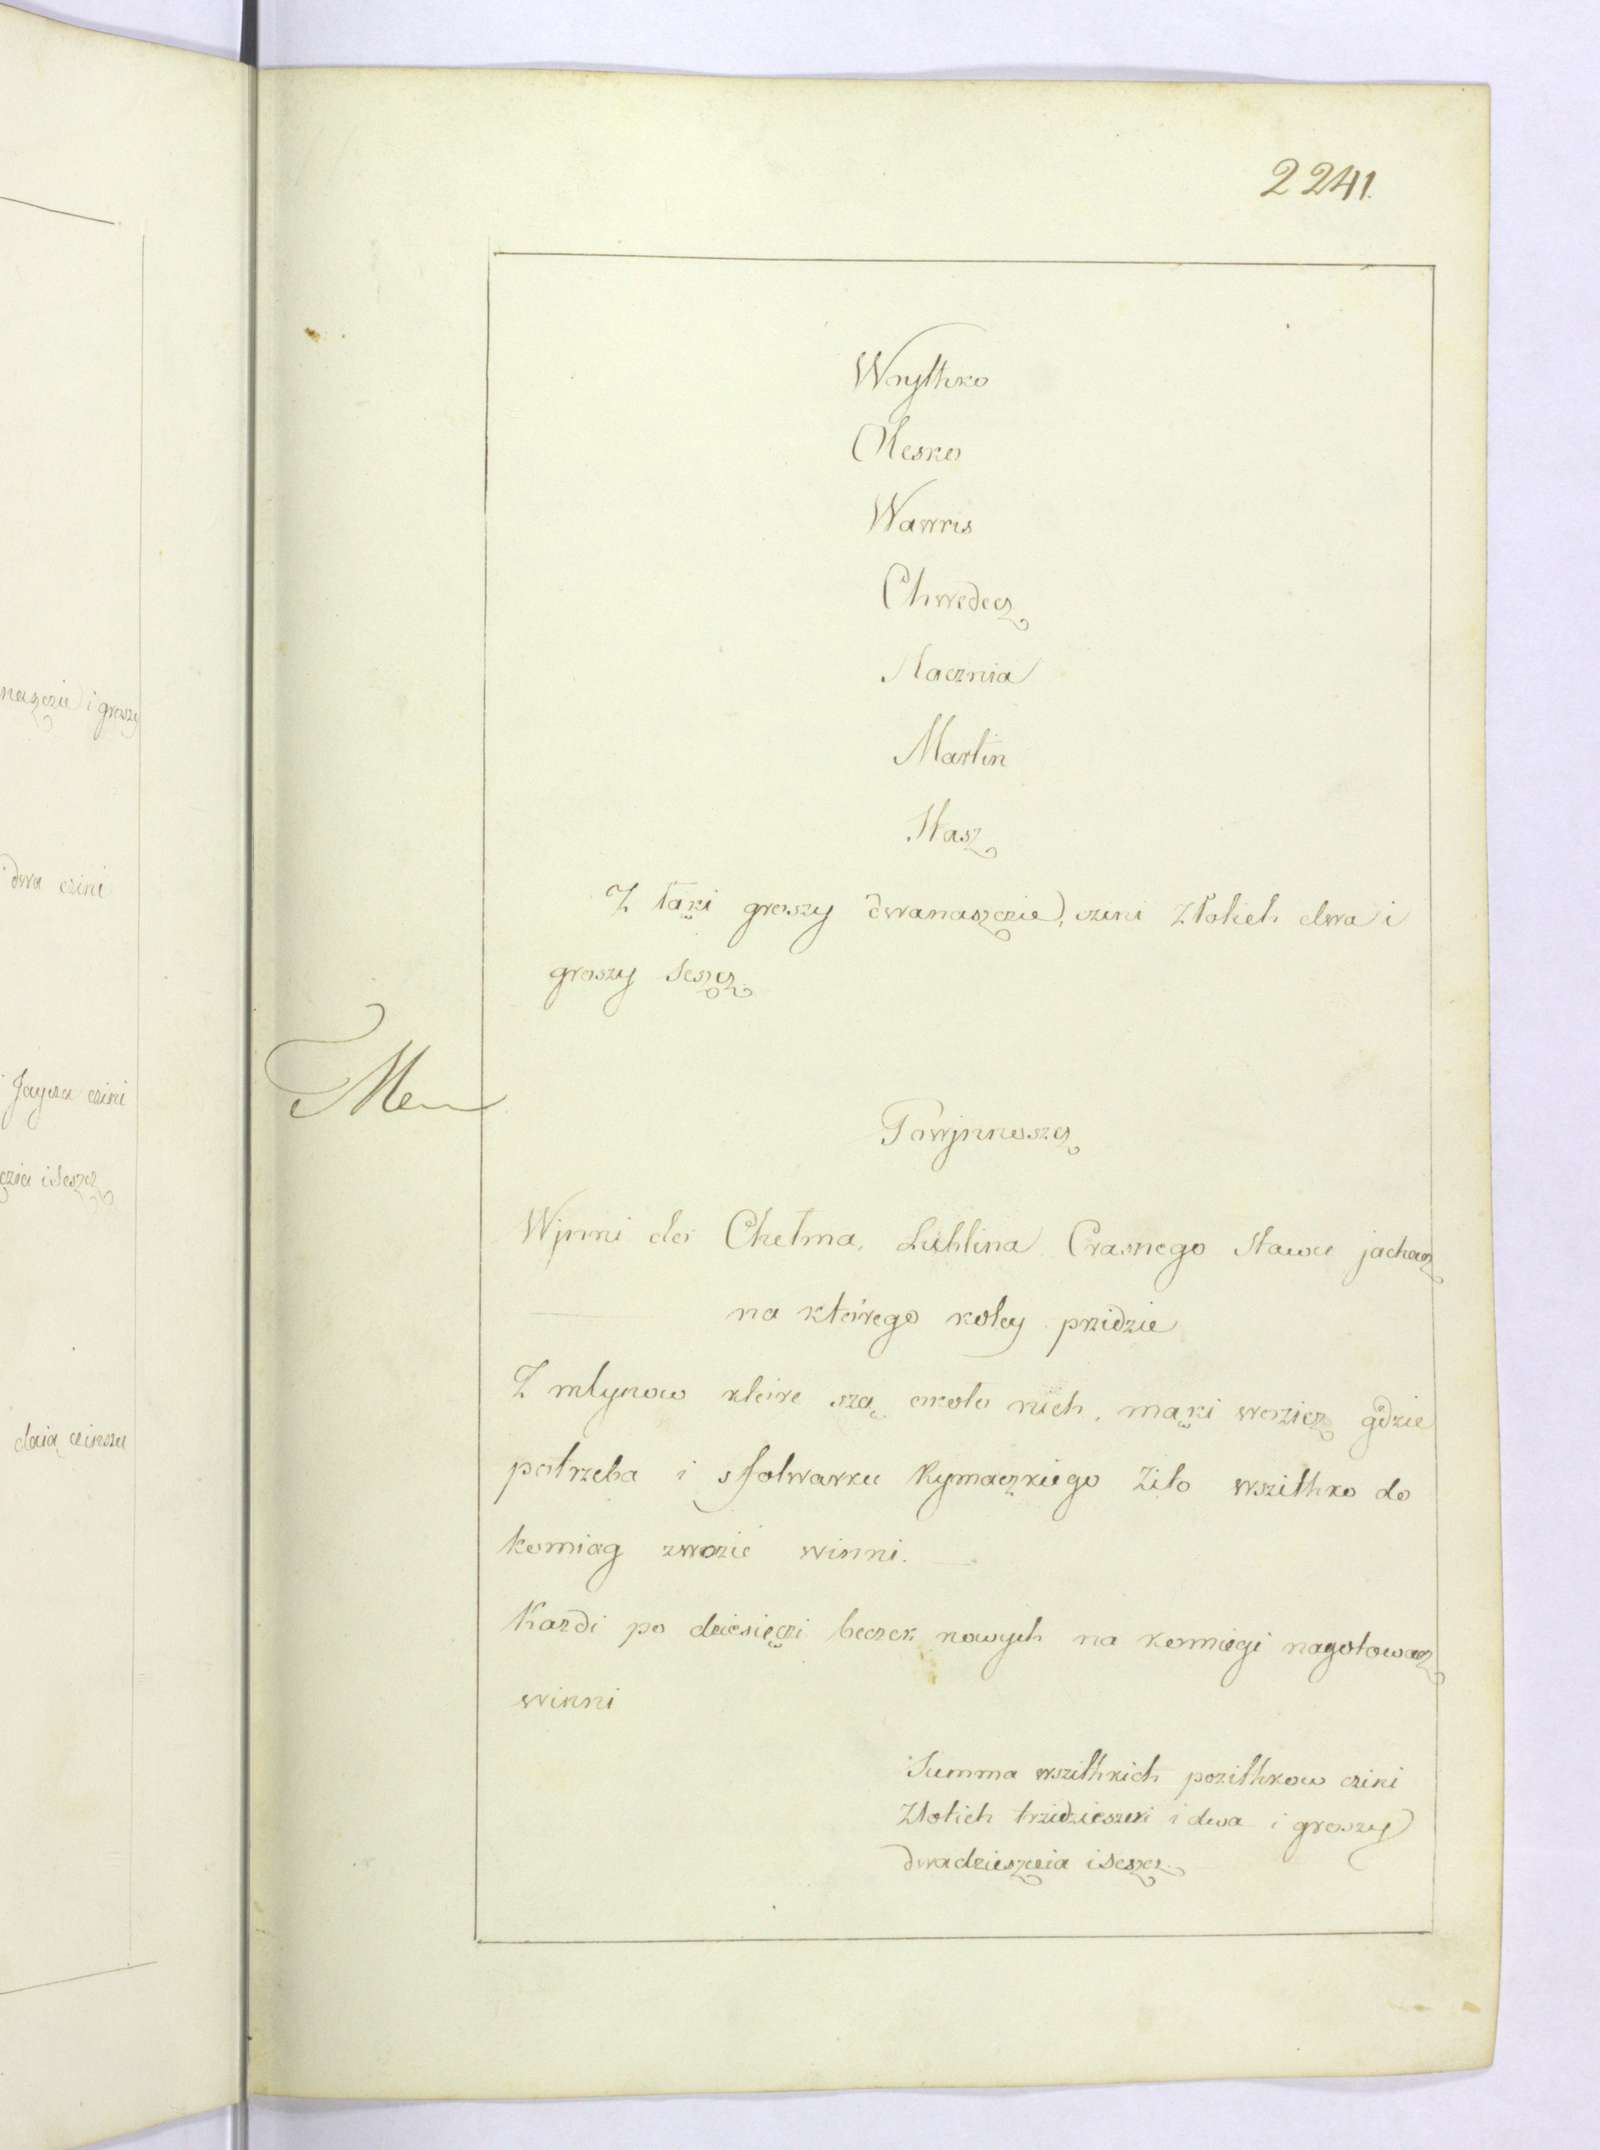 naszczie i groszy
dwa czini
Jaycza czini
czia i sescz
daią czinszu
2241.
Wnythko
Olesko
Wawris
Chwedecz
Martin
Stasz
Z tąki groszy dwanaszczie, czini Złotich dwa i
groszy sescz
Powjnnoscz
Wjnni do Chełma, Lublina Crasnego Stawu jachacz
na którego koley przidzie
Z młynow które szą około nich, mąki woziecz gdzie
potrzeba i s folwarku Rymaczkiego Zito wszithko do
komiag zwozić winni.
Kazdi po dziesięczi beczek nowych na komiegi nagotowacz
winni
Summa wszithkich pozithkow czini
Złotich trzidziesczi i dwa i groszy
dwadzieszczia i sescz